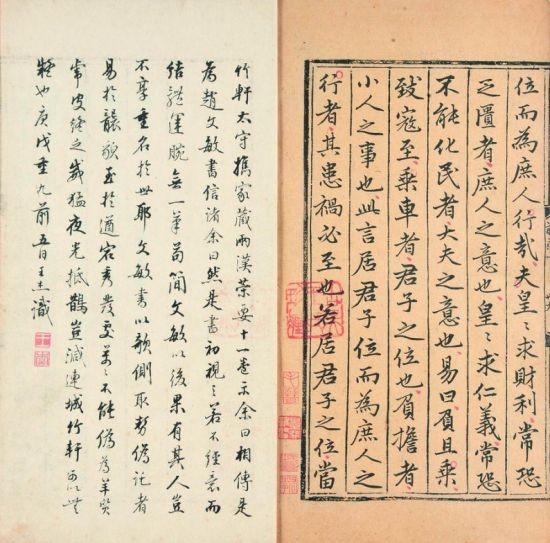 位而為庶人行哉夫皇〻求財利常恐
乏匱者庶人之意也皇〻求仁義常恐
不能化民者大夫之意也易曰負且乘
致寇至乘車者君子之位也負擔者
小人之事也此言居君子位而為庶人之
行者其患禍必至也若居君子之位當
竹軒太守攜家藏兩漢策要十一卷示余曰相傳是
為趙文敏書信諸余曰然是書初視之若不經意而
結體運腕無一筆苟簡文敏以後果有其人豈
不享重名於世耶文敏書以欹側取勢偽託者
易於襲貌至於遒宕秀發處萬〻不能偽為羊質
皮猛夜光抵鵲豈減連城竹軒可以無
疑也庚戌重九前五日王杰識